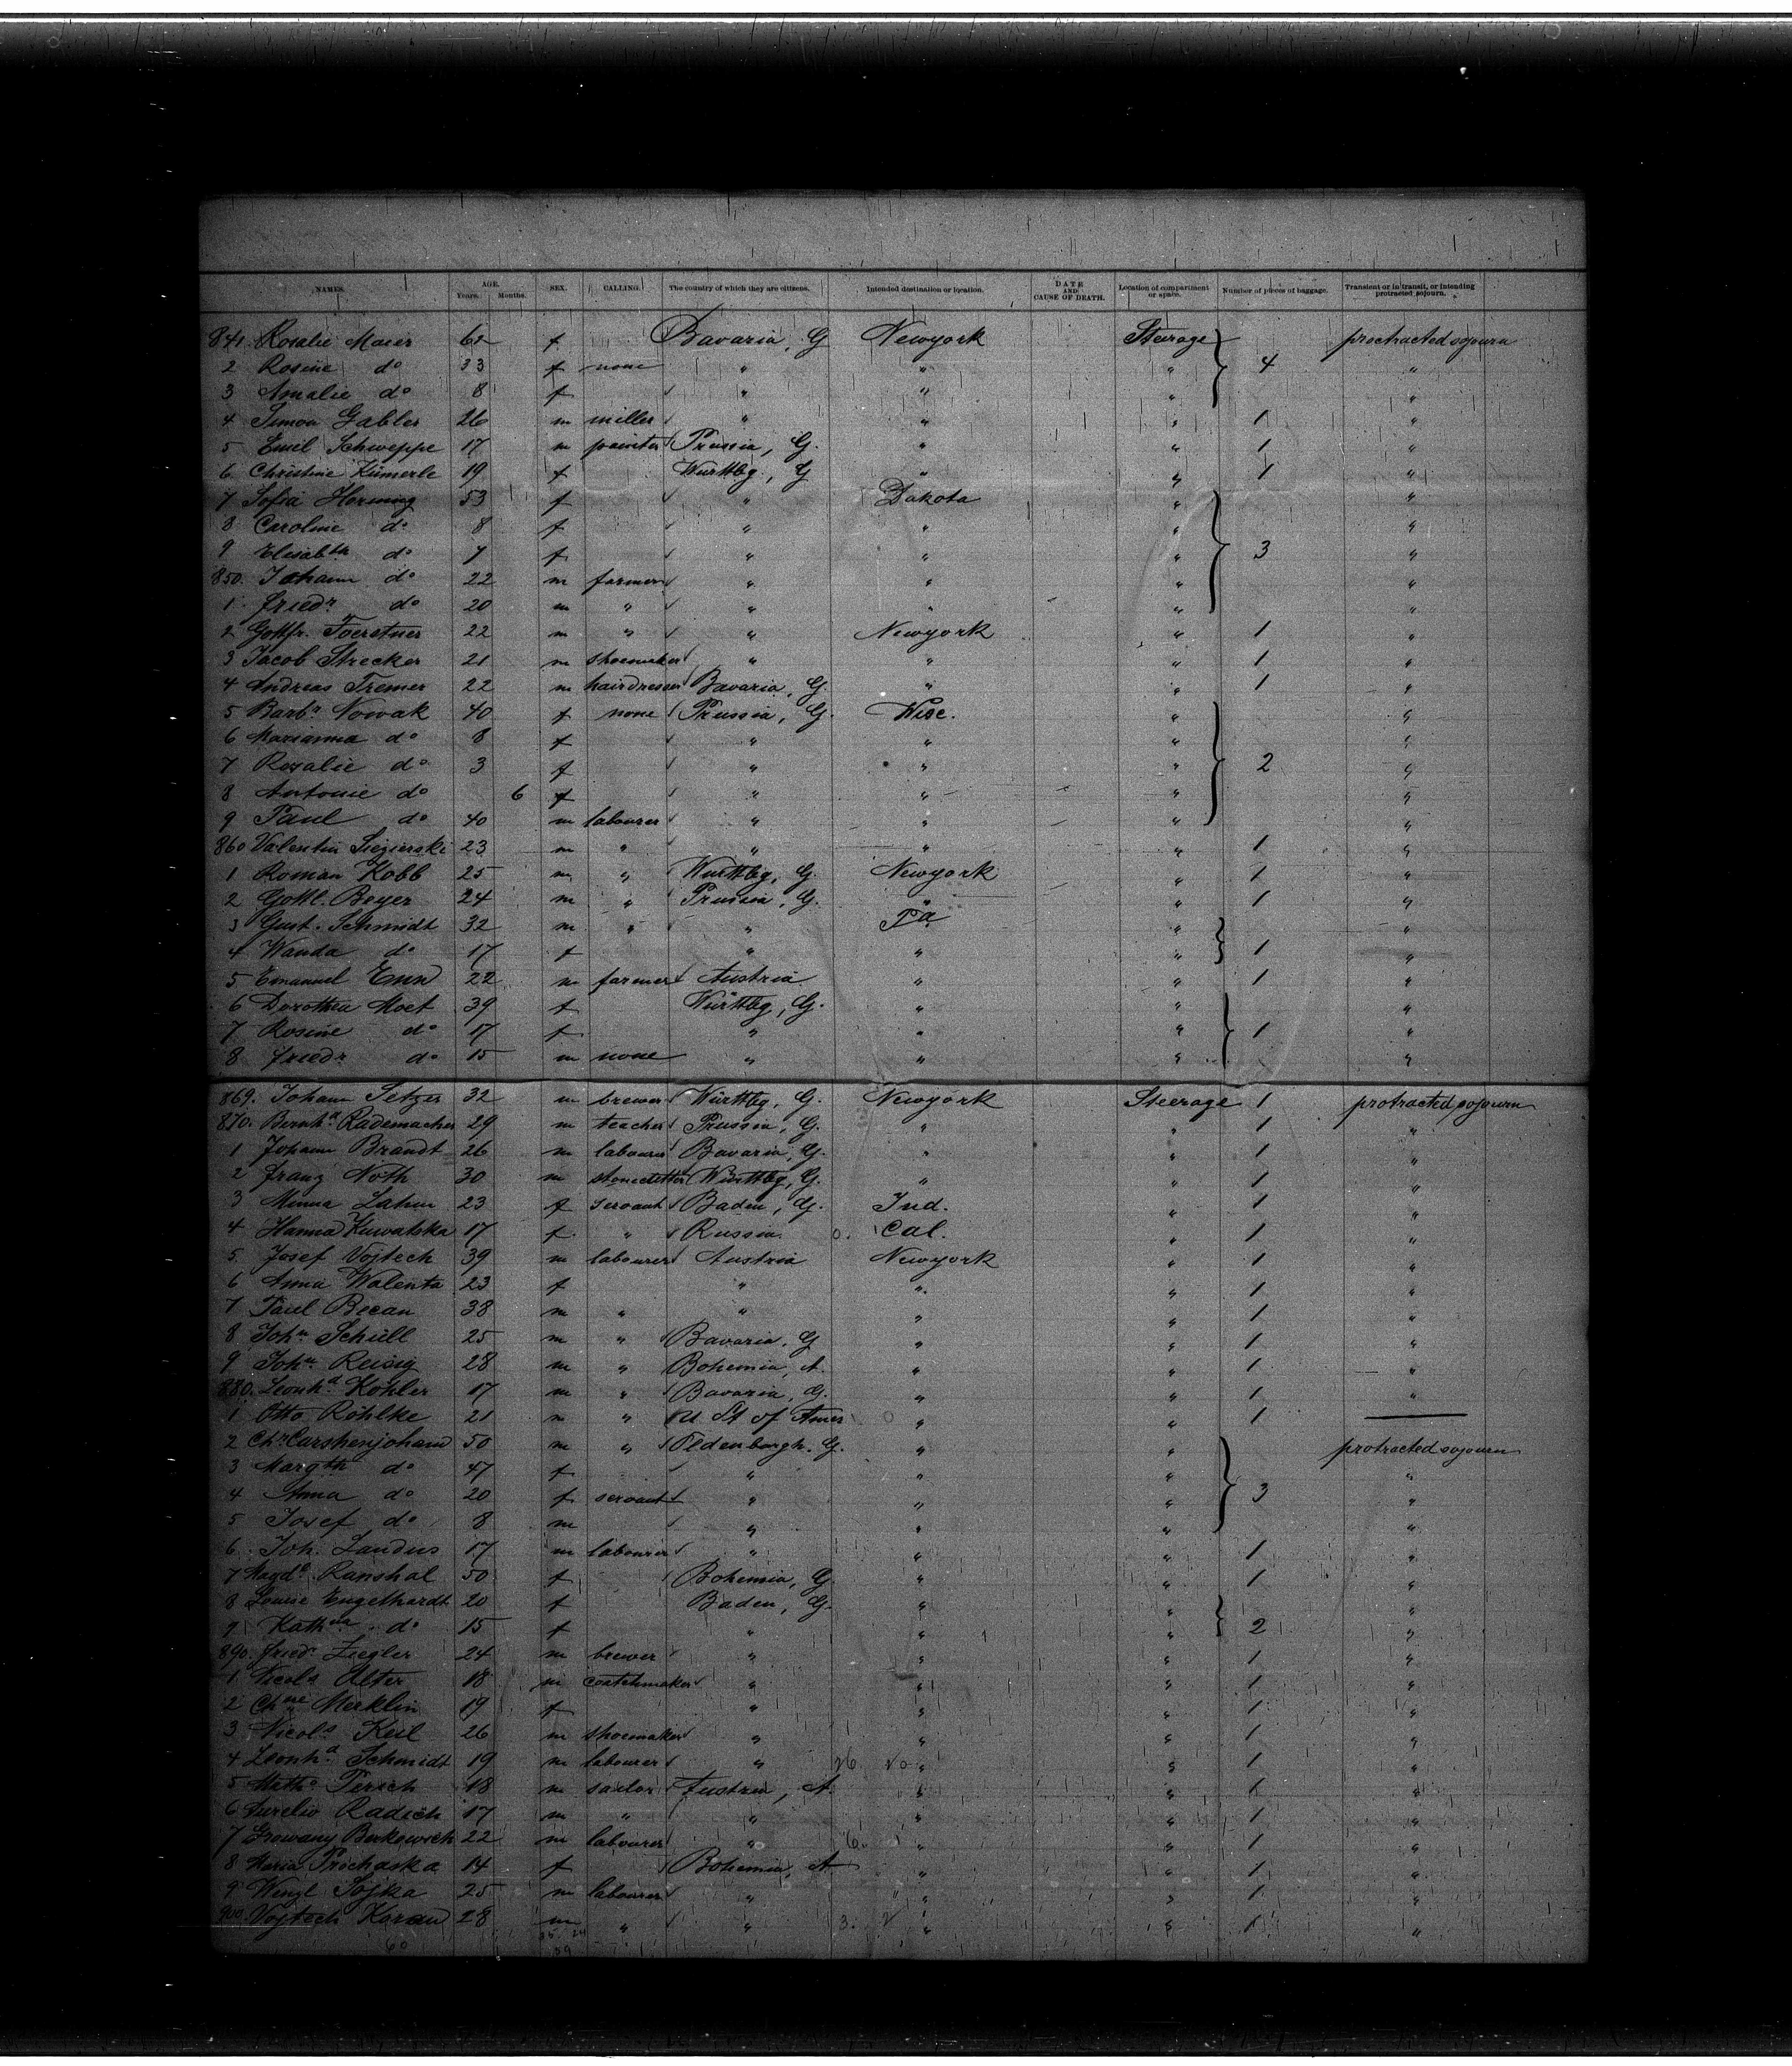 NAMES. AGE. Years. Months. SEX. CALLING. The country of which they are citizens. Intended destination or location. DATE AND CAUSE OF DEATH. Location of compartment or space. Number of pieces of baggage. Transient or in transit, or intending protracted sojourn.
841 Rosalie Maier 62 f Bavaria, G Newyork Steerage proctracted sojourn
2 Rosine do 33 f none " " " 4 "
3 Amalie do 8 f " " " "
4 Simon Gabler 26 m miller " " " 1 "
5 Emil Schweppe 17 m painter Prussia, G. " " 1 "
6 Christine Kümerle 19 f Württbg., G " " 1 "
7 Sofia Hornung 53 f " Dakota " "
8 Caroline do 8 f " " " "
9 Elisabth do 7 f " " " 3 "
850. Johann do 22 m farmer " " " "
1 Friedr do 20 m " " " " "
2 Gottfr. Foerstner 22 m " " Newyork " 1 "
3 Jacob Strecker 21 m shoemaker " " " 1 "
4 Andreas Tremer 22 m hairdresser Bavaria, G. " " 1 "
5 Barbr Nowak 40 f none Prussia, G. Wisc. " "
6 Marianna do 8 f " " " "
7 Rosalie do 3 f " " " 2 "
8 Antonie do 6 f " " " "
9 Paul do 40 m labourer " " " "
860 Valentin 23 m " " " " 1 "
1 Roman Kobb 25 m " Württbg, G. Newyork " 1 "
2 Gottl. Beyer 24 m " Prussia, G. " " 1 "
3 Gust. Schmidt 32 m " " Pa " "
4 Wanda do 17 f " " " 1 "
5 Emanuel 22 m farmer Austria " " 1 "
6 Dorothea Moet 39 f Württbg, G. " " "
7 Rosine do 17 f " " " 1 "
8 Friedr do 15 m none " " " "
869. Johann Setzer 32 m brewer Württbg, G. Newyork Steerage 1 protracted sojourn
870. Bernhd Rademacher 29 m teacher Prussia, G. " " 1 "
1 Johann Brandt 26 m labourer Bavaria, G. " " 1 "
2 Franz Noth 30 m Württbg, G. " " 1 "
3 Minna 23 f servant Baden, G. Ind. " 1 "
4 Hanna Kuwatska 17 f " Russia 0. Cal. " 1 "
5. Josef Vojtech 39 m labourer Austria Newyork " 1 "
6 Anna Walenta 23 f " " " 1 "
7 Paul Becan 38 m " " " " 1 "
8 Johs Schüll 25 m " Bavaria, G " " 1 "
9 Johs Reisig 28 m " Bohemia, A. " " 1 "
880. Leonhd Köhler 17 m " Bavaria, G. " " 1 "
1 Otto Röhlke 21 m " U St of Amer 0 " " 1
2 Chr Carshenjohann 50 m " Oldenburgh. G. " " protracted sojourn
3 Margth do 47 f " " " "
4 Anna do 20 f servant " " " 3 "
5 Josef do 8 m " " " "
6 Joh. Landus 17 m labourer " " " 1 "
7 Magda Ranshal 50 f Bohemia, G " " 1 "
8 Louise Engelhardt 20 f Baden, G. " " "
9 Kathna do 15 f " " " 2 "
890. Friedr Ziegler 24 m brewer " " " 1 "
1 Nicols Alter 18 m coatchmaker " " " 1 "
2 Chne Merklin 19 f " " " 1 "
3 Nicols Keil 26 m shoemaker " " " 1 "
4 Leonhd Schmidt 19 m labourer " " " 1 "
5 Persch 18 m sailor Austria, A. " " 1 "
6 Aurelio Radich 17 m " " " " 1 "
7 Berkowich 22 m labourer " 6. " " 1 "
8 Maria Prochaska 14 f Bohemia, A " " 1 "
9 Wenzl Sojka 25 m labourer " " " 1 "
900. Vojtech Koran 28 m " " 3. " " 1 "
60 59